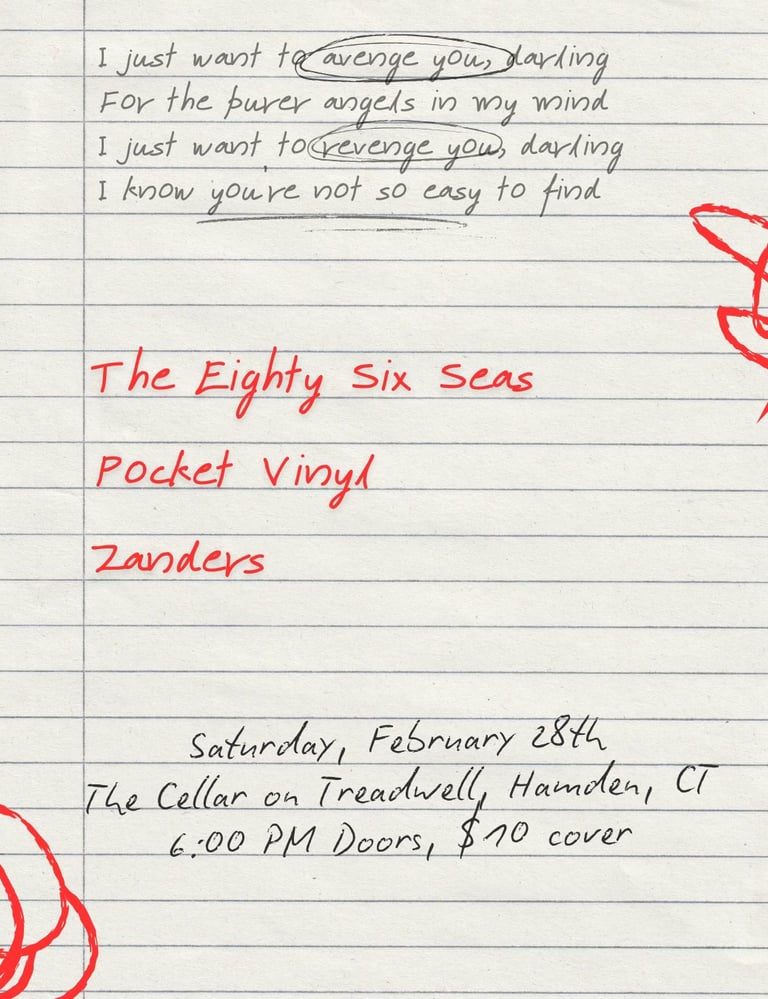 I just want to avenge you, darling
For the purer angels in my mind
I just want to revenge you, darling
I know you're not so easy to find
The Eighty Six Seas
Pocket Vinyl
Zanders
Saturday, February 28th
The Cellar on Treadwell, Hamden, CT
6:00 PM Doors, $10 cover